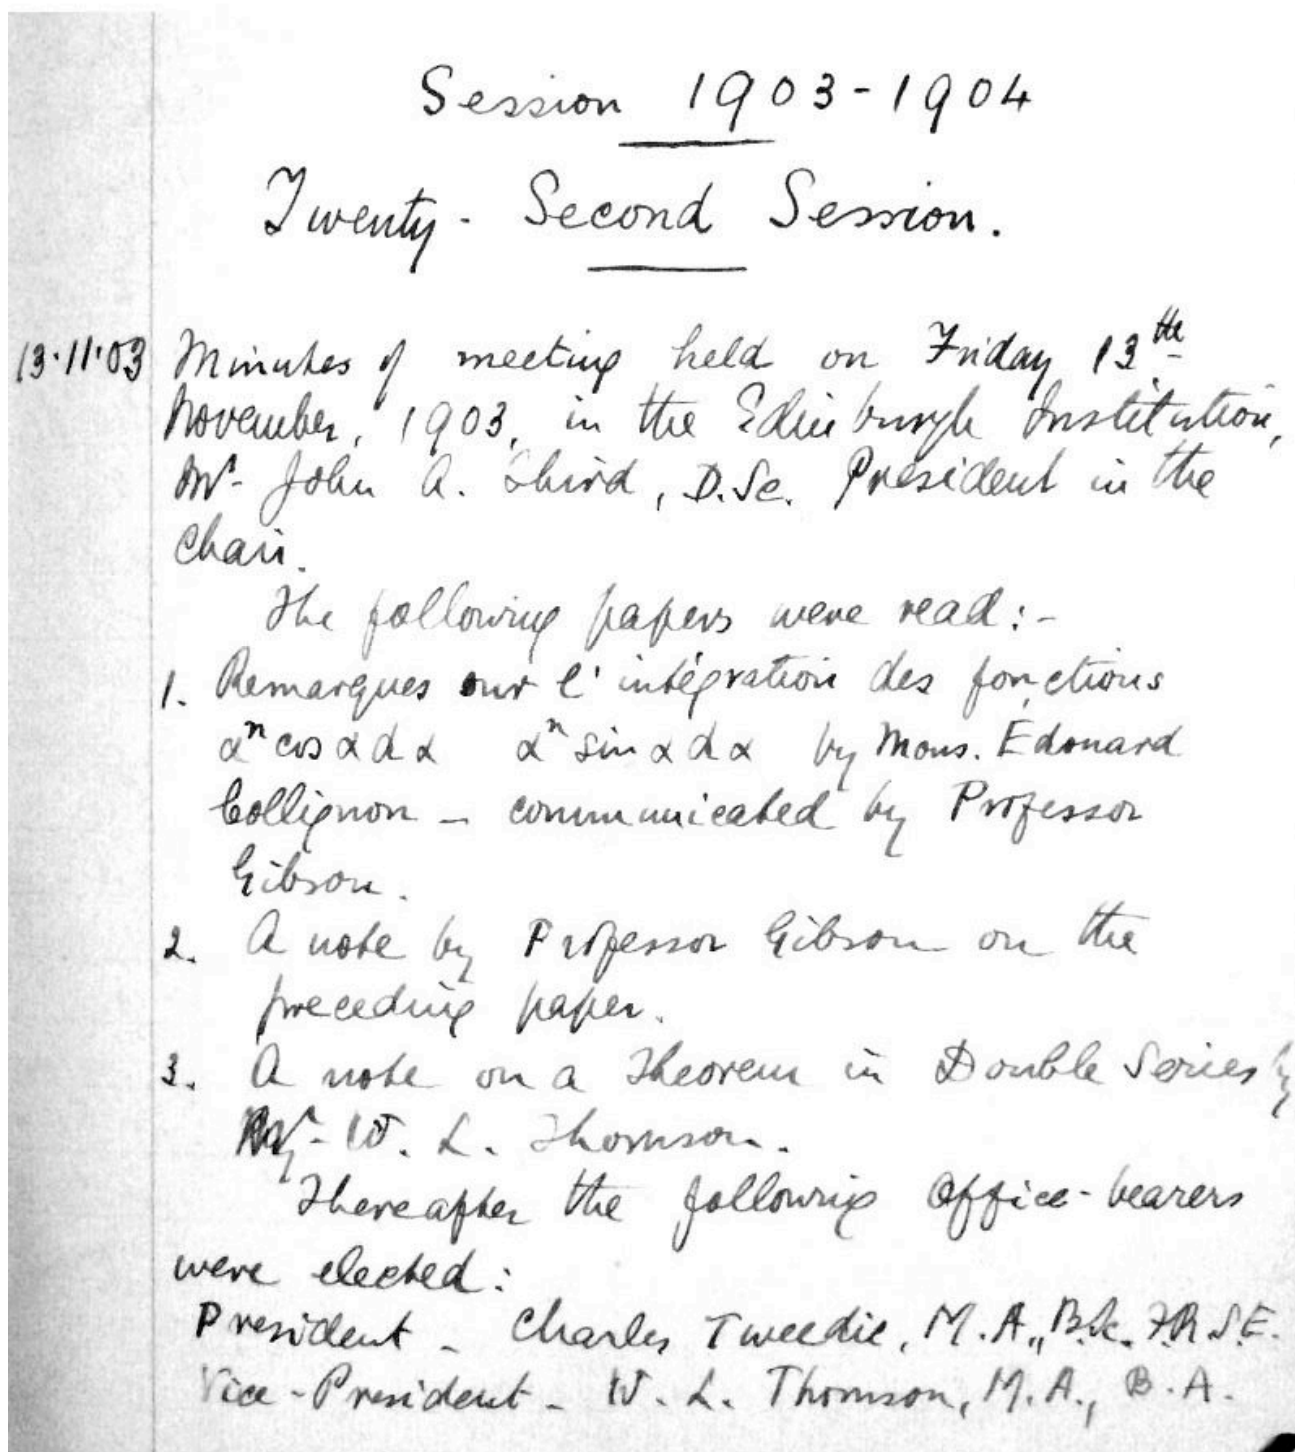 Session 1903-1904
Twenty-Second Session.
13·11·03 Minutes of meeting held on Friday 13th
November, 1903, in the Edinburgh Institution,
Mr. John A. Third, D.Sc. President in the
Chair.
The following papers were read:-
1. Remarques sur l'intégration des fonctions
αⁿ cos α d α αⁿ sin α d α by Mons. Édouard
Collignon – communicated by Professor
Gibson.
2. A note by Professor Gibson on the
preceding paper.
3. A note on a Theorem in Double Series by
Mr. W. L. Thomson.
Thereafter the following Office-bearers
were elected:
President – Charles Tweedie, M.A., B.Sc. F.R.S.E.
Vice-President – W. L. Thomson, M.A., B.A.